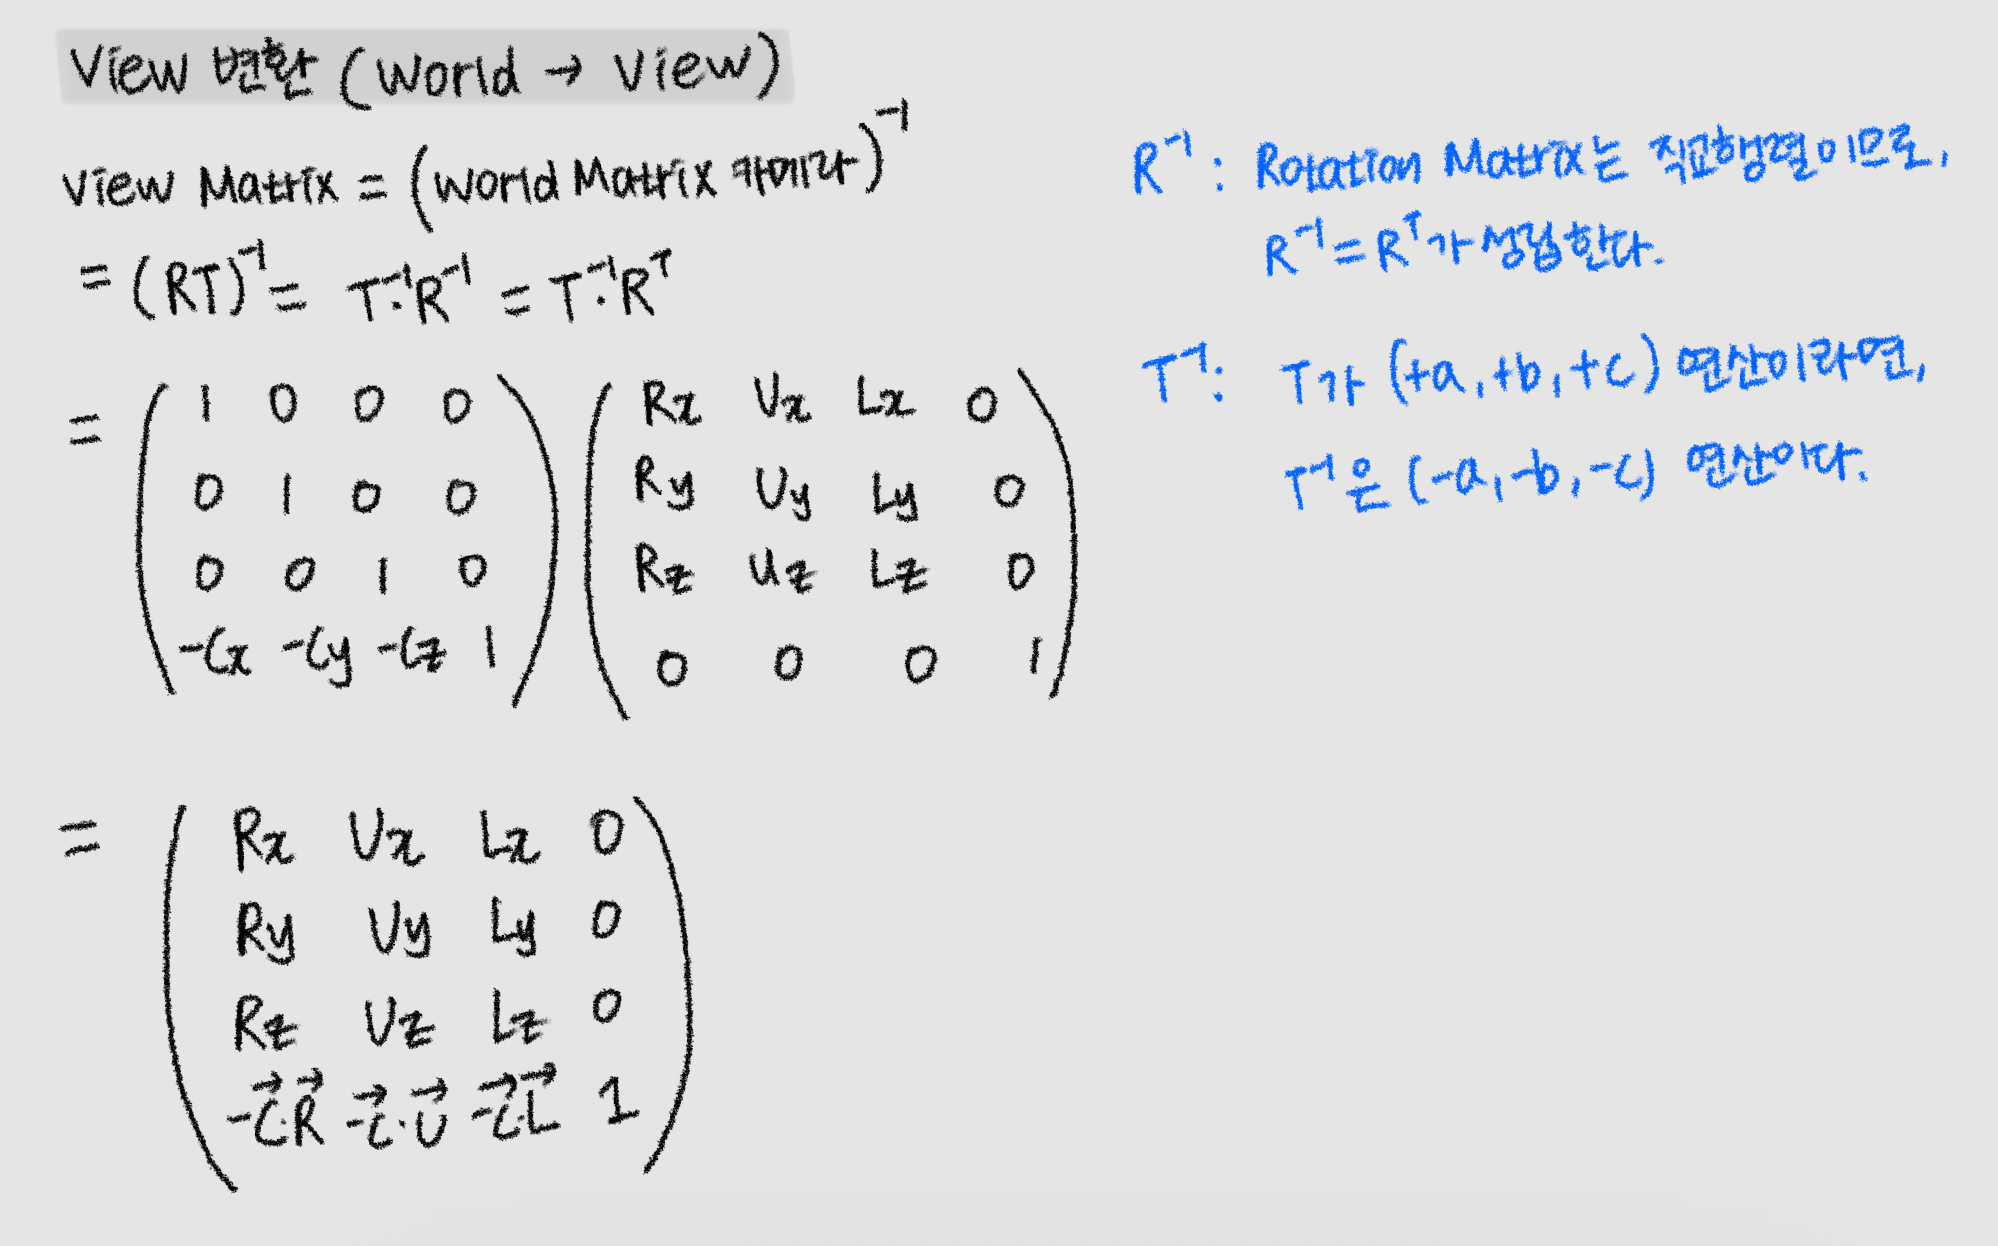 View 변환 (World → View)
View Matrix = (World Matrix 카메라)⁻¹
= (RT)⁻¹ = T⁻¹·R⁻¹ = T⁻¹·Rᵀ
= ( 1 0 0 0 ) ( Rx Ux Lx 0 )
0 1 0 0 Ry Uy Ly 0
0 0 1 0 Rz Uz Lz 0
-Cx -Cy -Cz 1 0 0 0 1
= ( Rx Ux Lx 0 )
Ry Uy Ly 0
Rz Uz Lz 0
-C⃗·R⃗ -C⃗·U⃗ -C⃗·L⃗ 1
R⁻¹ : Rotation Matrix는 직교행렬이므로,
R⁻¹ = Rᵀ가 성립한다.
T⁻¹ : T가 (+a, +b, +c) 연산이라면,
T⁻¹은 (-a, -b, -c) 연산이다.